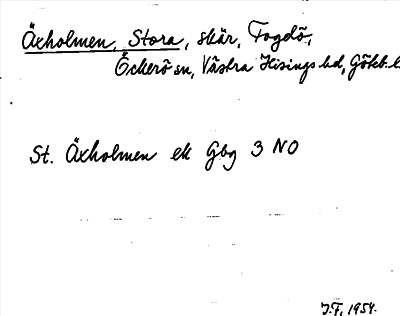 Äxholmen, Stora, skär, Fogdö,
Öckerö sn, Västra Hisings hd, Göteb. l
St. Äxholmen ek Gbg 3 NO
J.F. 1954.